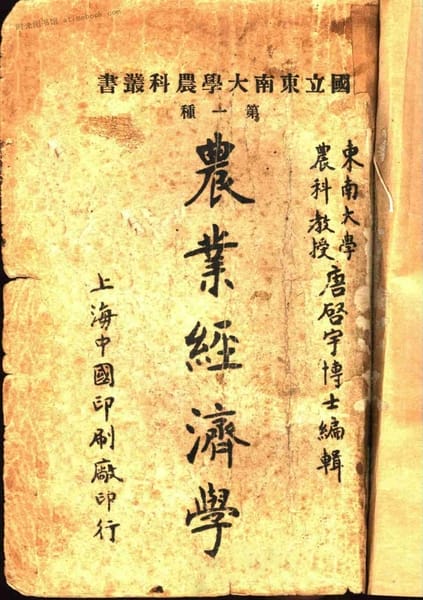 國立東南大學農科叢書
第一種
東南大學
農科教授
唐啓宇博士編輯
農業經濟學
上海中國印刷廠印行